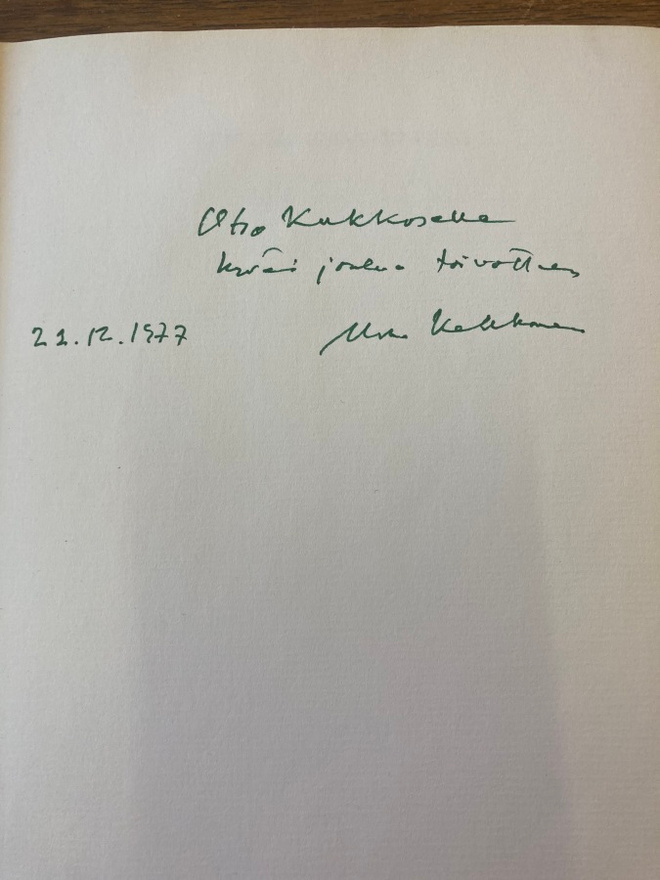 Otso Kukkoselle
hyvää joulua toivottaen
21.12.1977 Urho Kekkonen